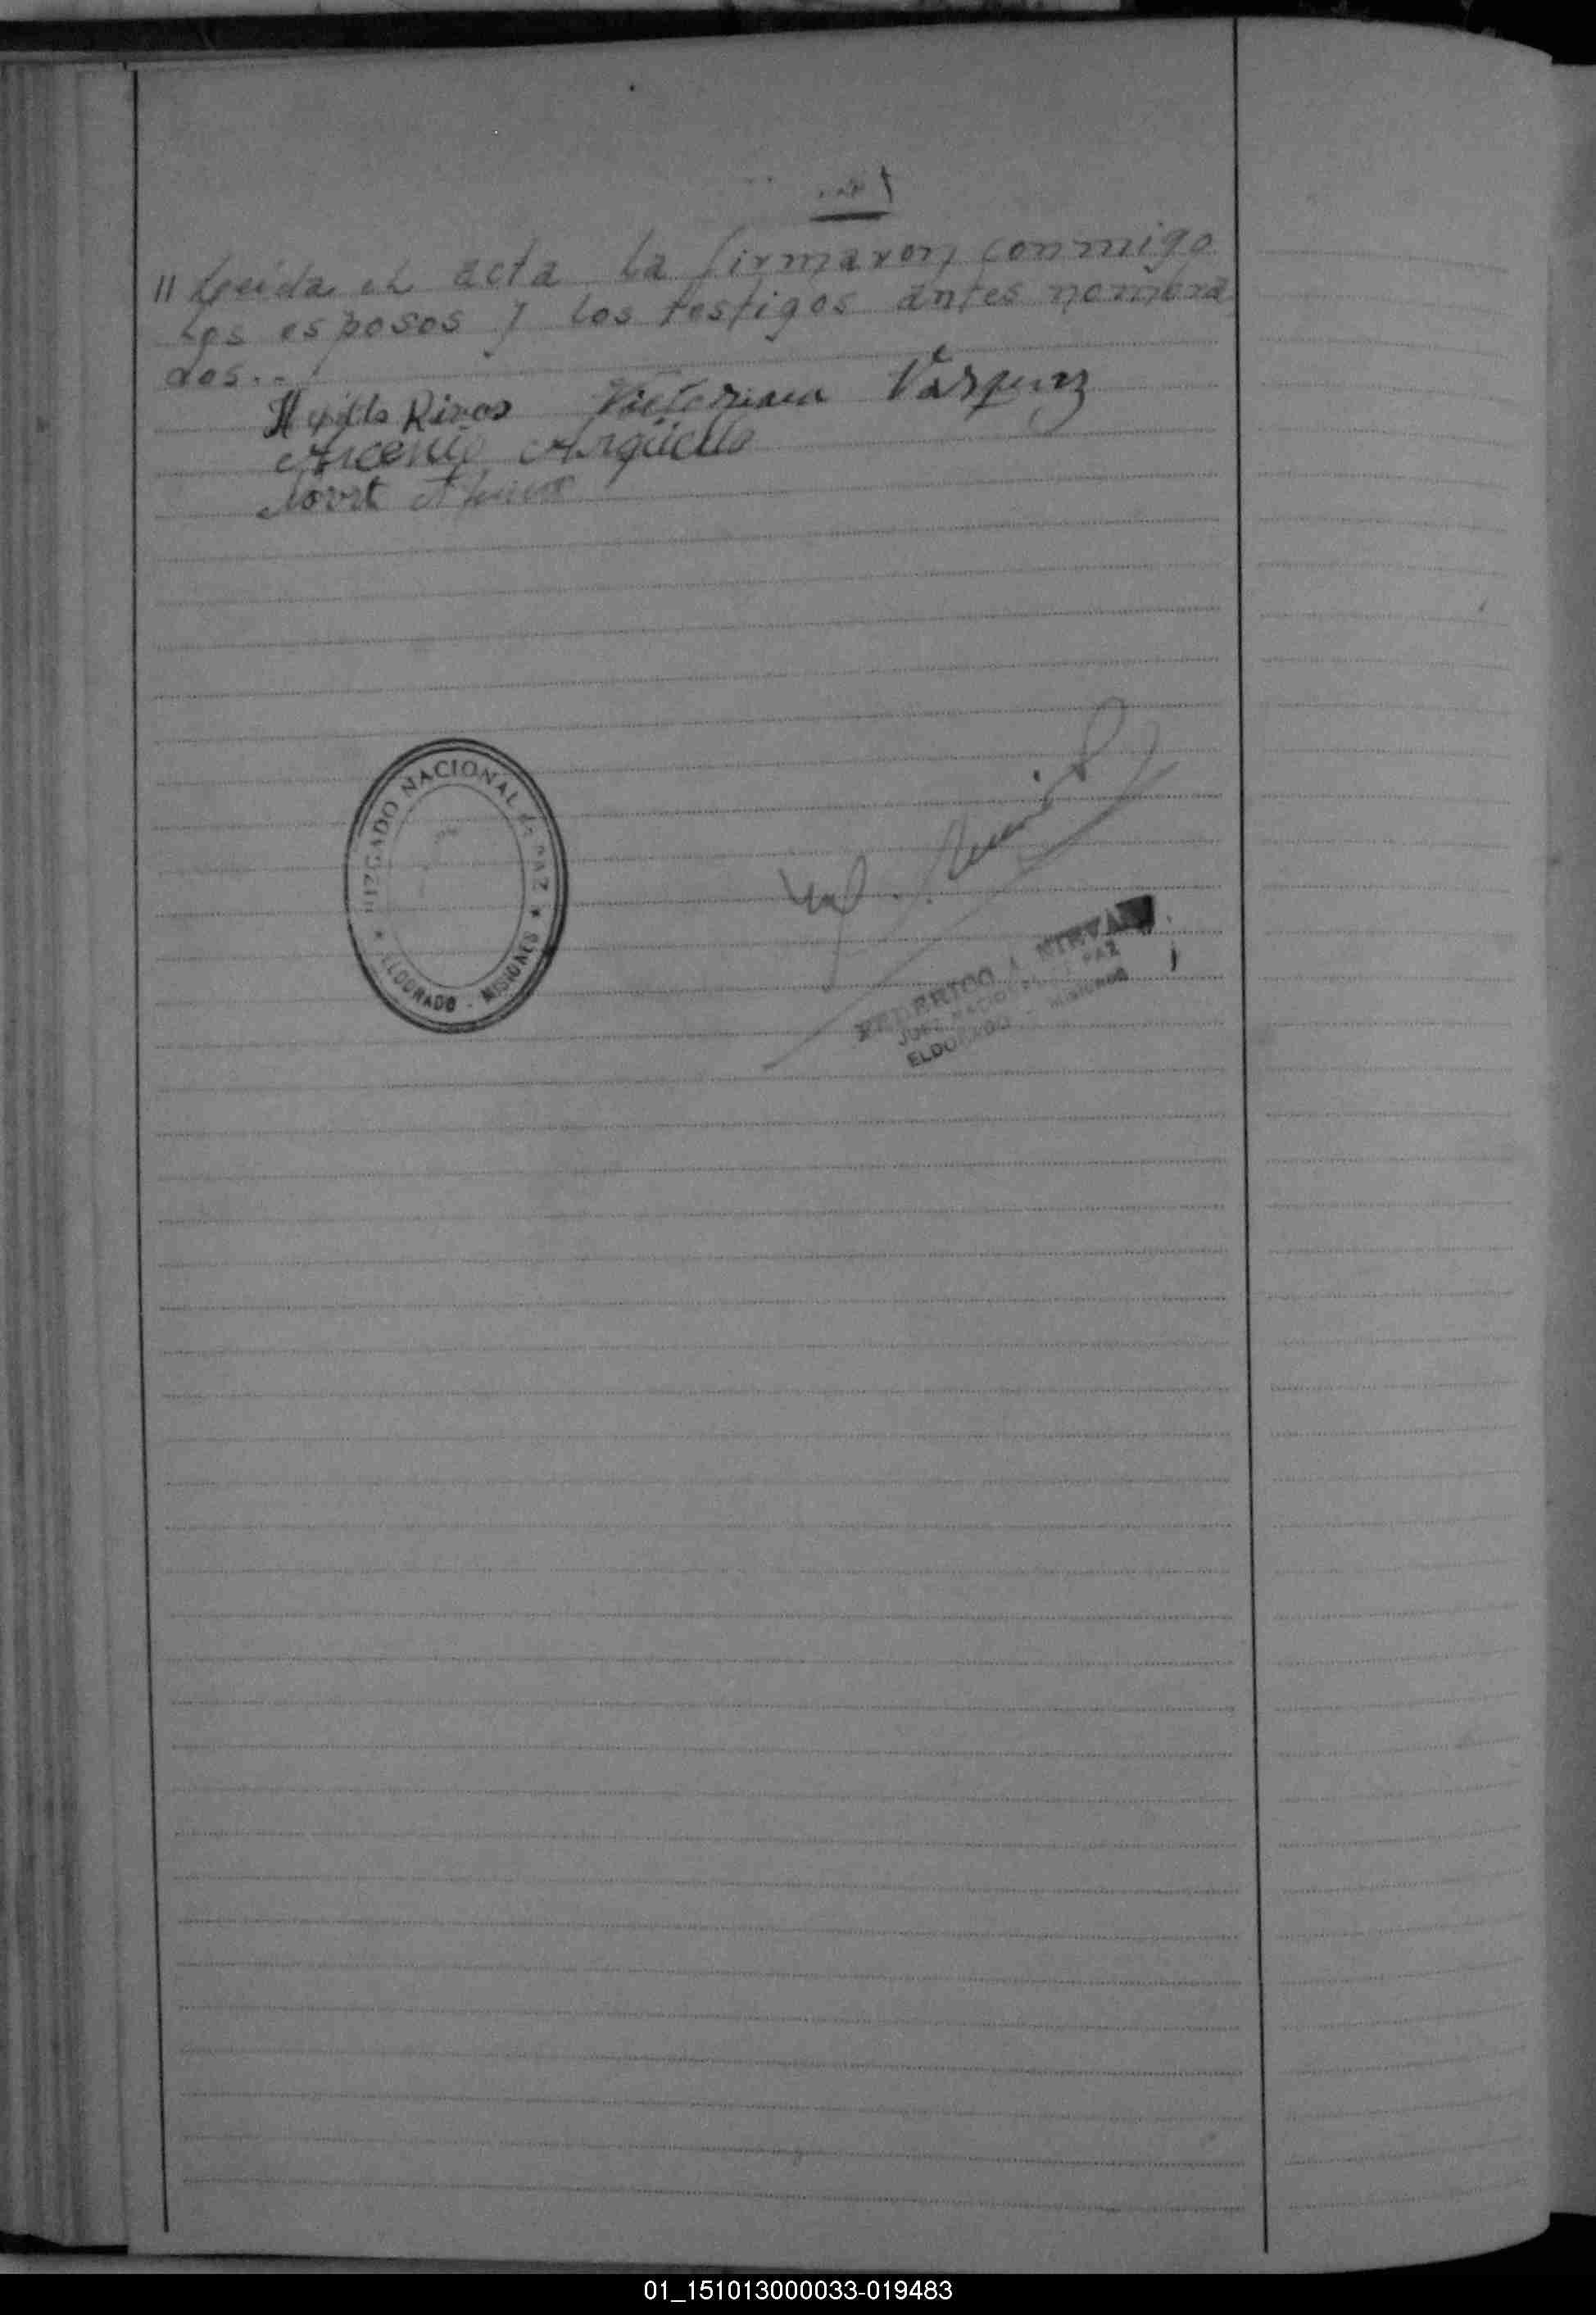 " Leida el acta la firmaron conmigo
los esposos y los testigos antes nombra
dos..
Rivas Victoriana Vásquez
Arcenio Argüello
JUZGADO NACIONAL de PAZ
ELDORADO - MISIONES
FEDERICO A.
JUEZ NACIONAL DE PAZ
ELDORADO - MISIONES
01_151013000033-019483